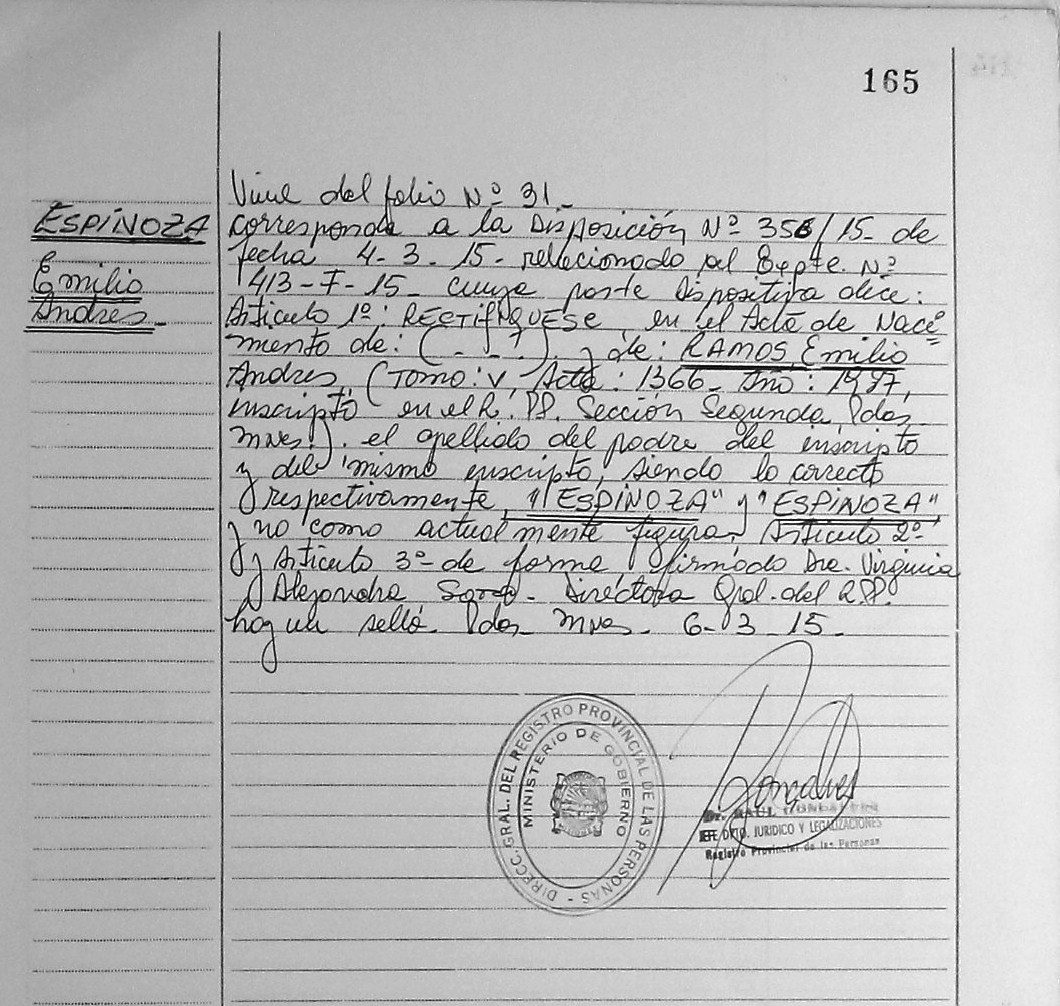 165
ESPÍNOZA
Emilio
Andres
Viene del folio Nº 31.-
corresponde a la Disposición Nº 358/15- de
fecha 4-3-15- relacionado al Expte. Nº
413-F-15- cuya parte dispositiva dice:
Articulo 1º: RECTIFIQUESE, en el Acta de Naci
miento de: (- - -) y de: RAMOS, Emilio
Andres, (Tomo: V, Acta: 1366- Año: 1987,
inscripto en el R. PP. Sección Segunda, Pdas,
Mnes.). el apellido del padre del inscripto
y del mismo inscripto, siendo lo correcto
respectivamente, "ESPÍNOZA" y "ESPÍNOZA"
y no como actualmente figura, Articulo 2º-
y Articulo 3º- de forma firmado Dra. Virginia
Alejandra - Directora Gral. del R.PP.
hay un sello. Pdas Mnes. 6-3-15-
DIRECC. GRAL. DEL REGISTRO PROVINCIAL DE LAS PERSONAS -
MINISTERIO DE GOBIERNO
Dr. RAUL
JEFE DPTO. JURIDICO Y LEGALIZACIONES
Registro Provincial de las Personas